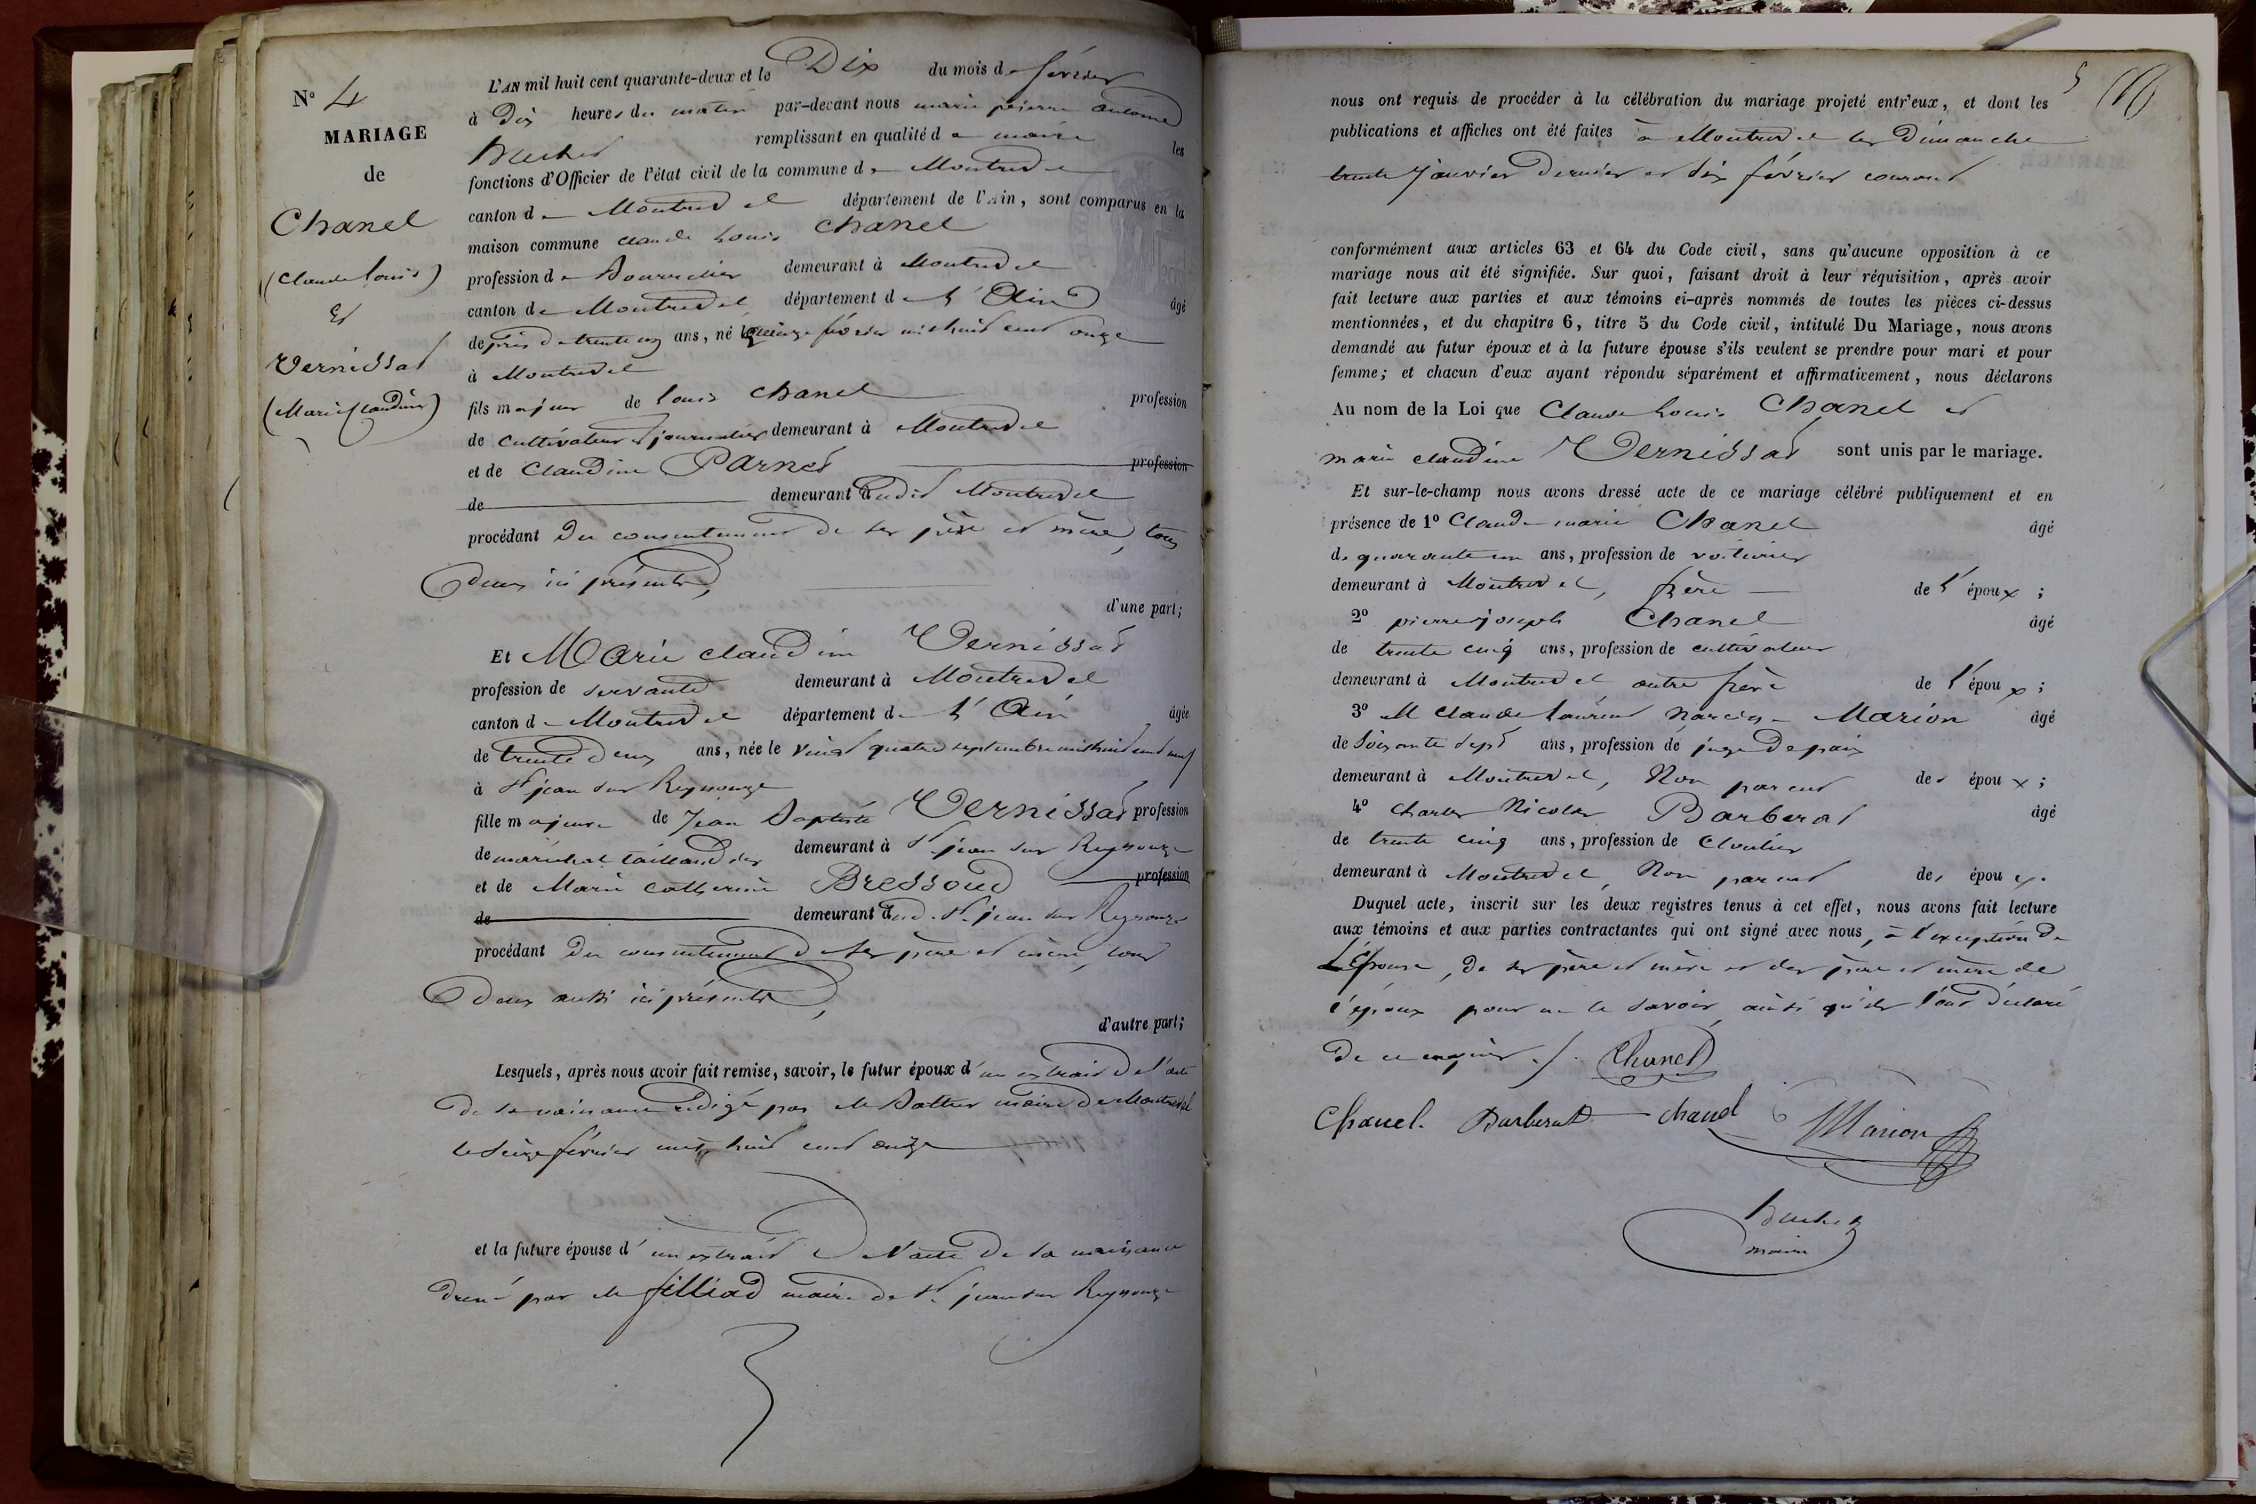 N° 4
MARIAGE
de
Chanel
(Claude Louis)
Et
Vernissat
(Marie Claudine)
L'AN mil huit cent quarante-deux et le Dix du mois de février
à Dix heures du matin par-devant nous marie pierre antoine
Buchet remplissant en qualité de maire les
fonctions d'Officier de l'état civil de la commune de Montrevel
canton de Montrevel département de l'Ain, sont comparus en la
maison commune claude Louis Chanel
profession de Bourrelier demeurant à Montrevel
canton de Montrevel département de L'Ain âgé
de près de trente un ans, né le quinze février mil huit cent onze
à Montrevel
fils majeur de Louis Chanel profession
de cultivateur journalier demeurant à Montrevel
et de Claudine Parnet profession
de demeurant audit Montrevel
procédant Du consentement de ses père et mère, tous
Deux ici présents,
d'une part;
Et Marie claudine Vernissat
profession de servante demeurant à Montrevel
canton de Montrevel département de L'Ain âgée
de trente Deux ans, née le vingt quatre septembre mil huit cent neuf
à St jean sur Reyssouze
fille majeure de Jean Baptiste Vernissat profession
de maréchal taillandier demeurant à St jean sur Reyssouze
et de Marie Catherine Bressoud profession
de demeurant aud. St jean sur Reyssouze
procédant Du consentement de ses père et mère, tous
Deux aussi ici présents,
d'autre part;
Lesquels, après nous avoir fait remise, savoir, le futur époux d'un extrait de l'acte
De sa naissance rédigé par M maire De Montrevel
le seize février mil huit cent onze
et la future épouse d'un extrait De l'acte De sa naissance
Dressé par M filliod maire de St jean sur Reyssouze
5
nous ont requis de procéder à la célébration du mariage projeté entr'eux, et dont les
publications et affiches ont été faites à Montrevel les Dimanche
trente Janvier Dernier et six février courant
conformément aux articles 63 et 64 du Code civil, sans qu'aucune opposition à ce
mariage nous ait été signifiée. Sur quoi, faisant droit à leur réquisition, après avoir
fait lecture aux parties et aux témoins ci-après nommés de toutes les pièces ci-dessus
mentionnées, et du chapitre 6, titre 5 du Code civil, intitulé Du Mariage, nous avons
demandé au futur époux et à la future épouse s'ils veulent se prendre pour mari et pour
femme; et chacun d'eux ayant répondu séparément et affirmativement, nous déclarons
Au nom de la Loi que Claude Louis Chanel et
marie claudine Vernissat sont unis par le mariage.
Et sur-le-champ nous avons dressé acte de ce mariage célébré publiquement et en
présence de 1° Claude marie Chanel âgé
de quarante un ans, profession de voiturier
demeurant à Montrevel, frère de l'époux;
2° pierre joseph Chanel âgé
de trente cinq ans, profession de cultivateur
demeurant à Montrevel autre frère de l'époux;
3° M Claude Laurent Narcisse Marion âgé
de Soixante Sept ans, profession de juge De paix
demeurant à Montrevel, Non parent des époux;
4° Charles Nicolas Barberat âgé
de trente cinq ans, profession de Cloutier
demeurant à Montrevel, Non parent des époux.
Duquel acte, inscrit sur les deux registres tenus à cet effet, nous avons fait lecture
aux témoins et aux parties contractantes qui ont signé avec nous, à l'exception de
L'épouse, de ses père et mère et des père et mère de
l'époux pour ne le savoir, ainsi qu'ils l'ont déclaré
De ce enquis ./. Chanel
Chanel. Barberat chanel Marion
Buchet
maire